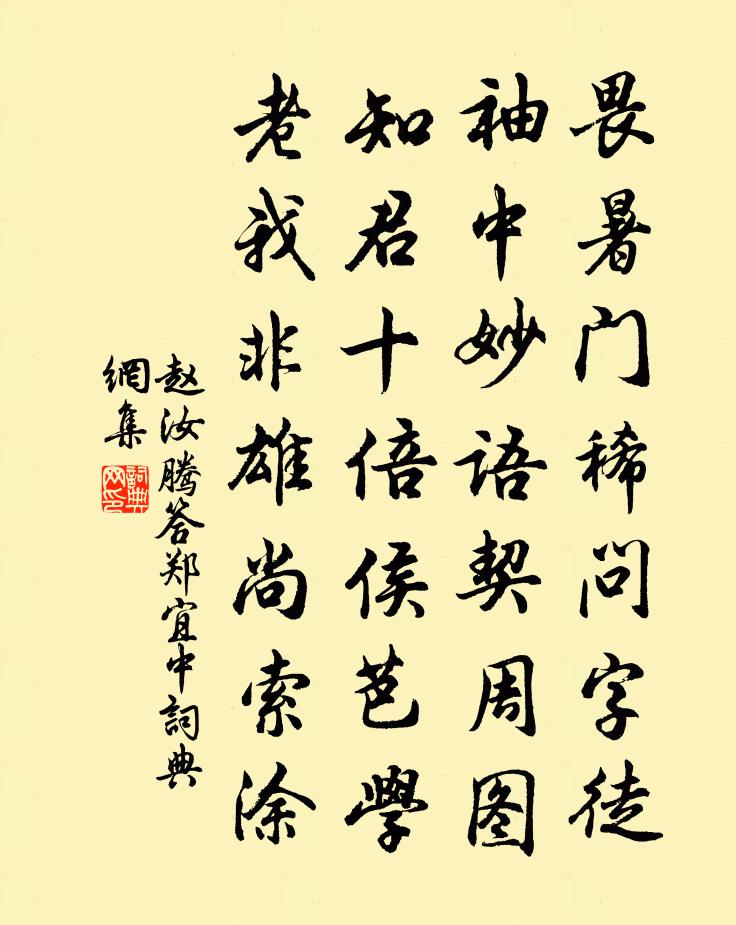 畏暑门稀问字徒
袖中妙语契周图
知君十倍侯芭學
老我非雄尚索涂
赵汝腾答郑宜中詞典
網集
詞典
网印